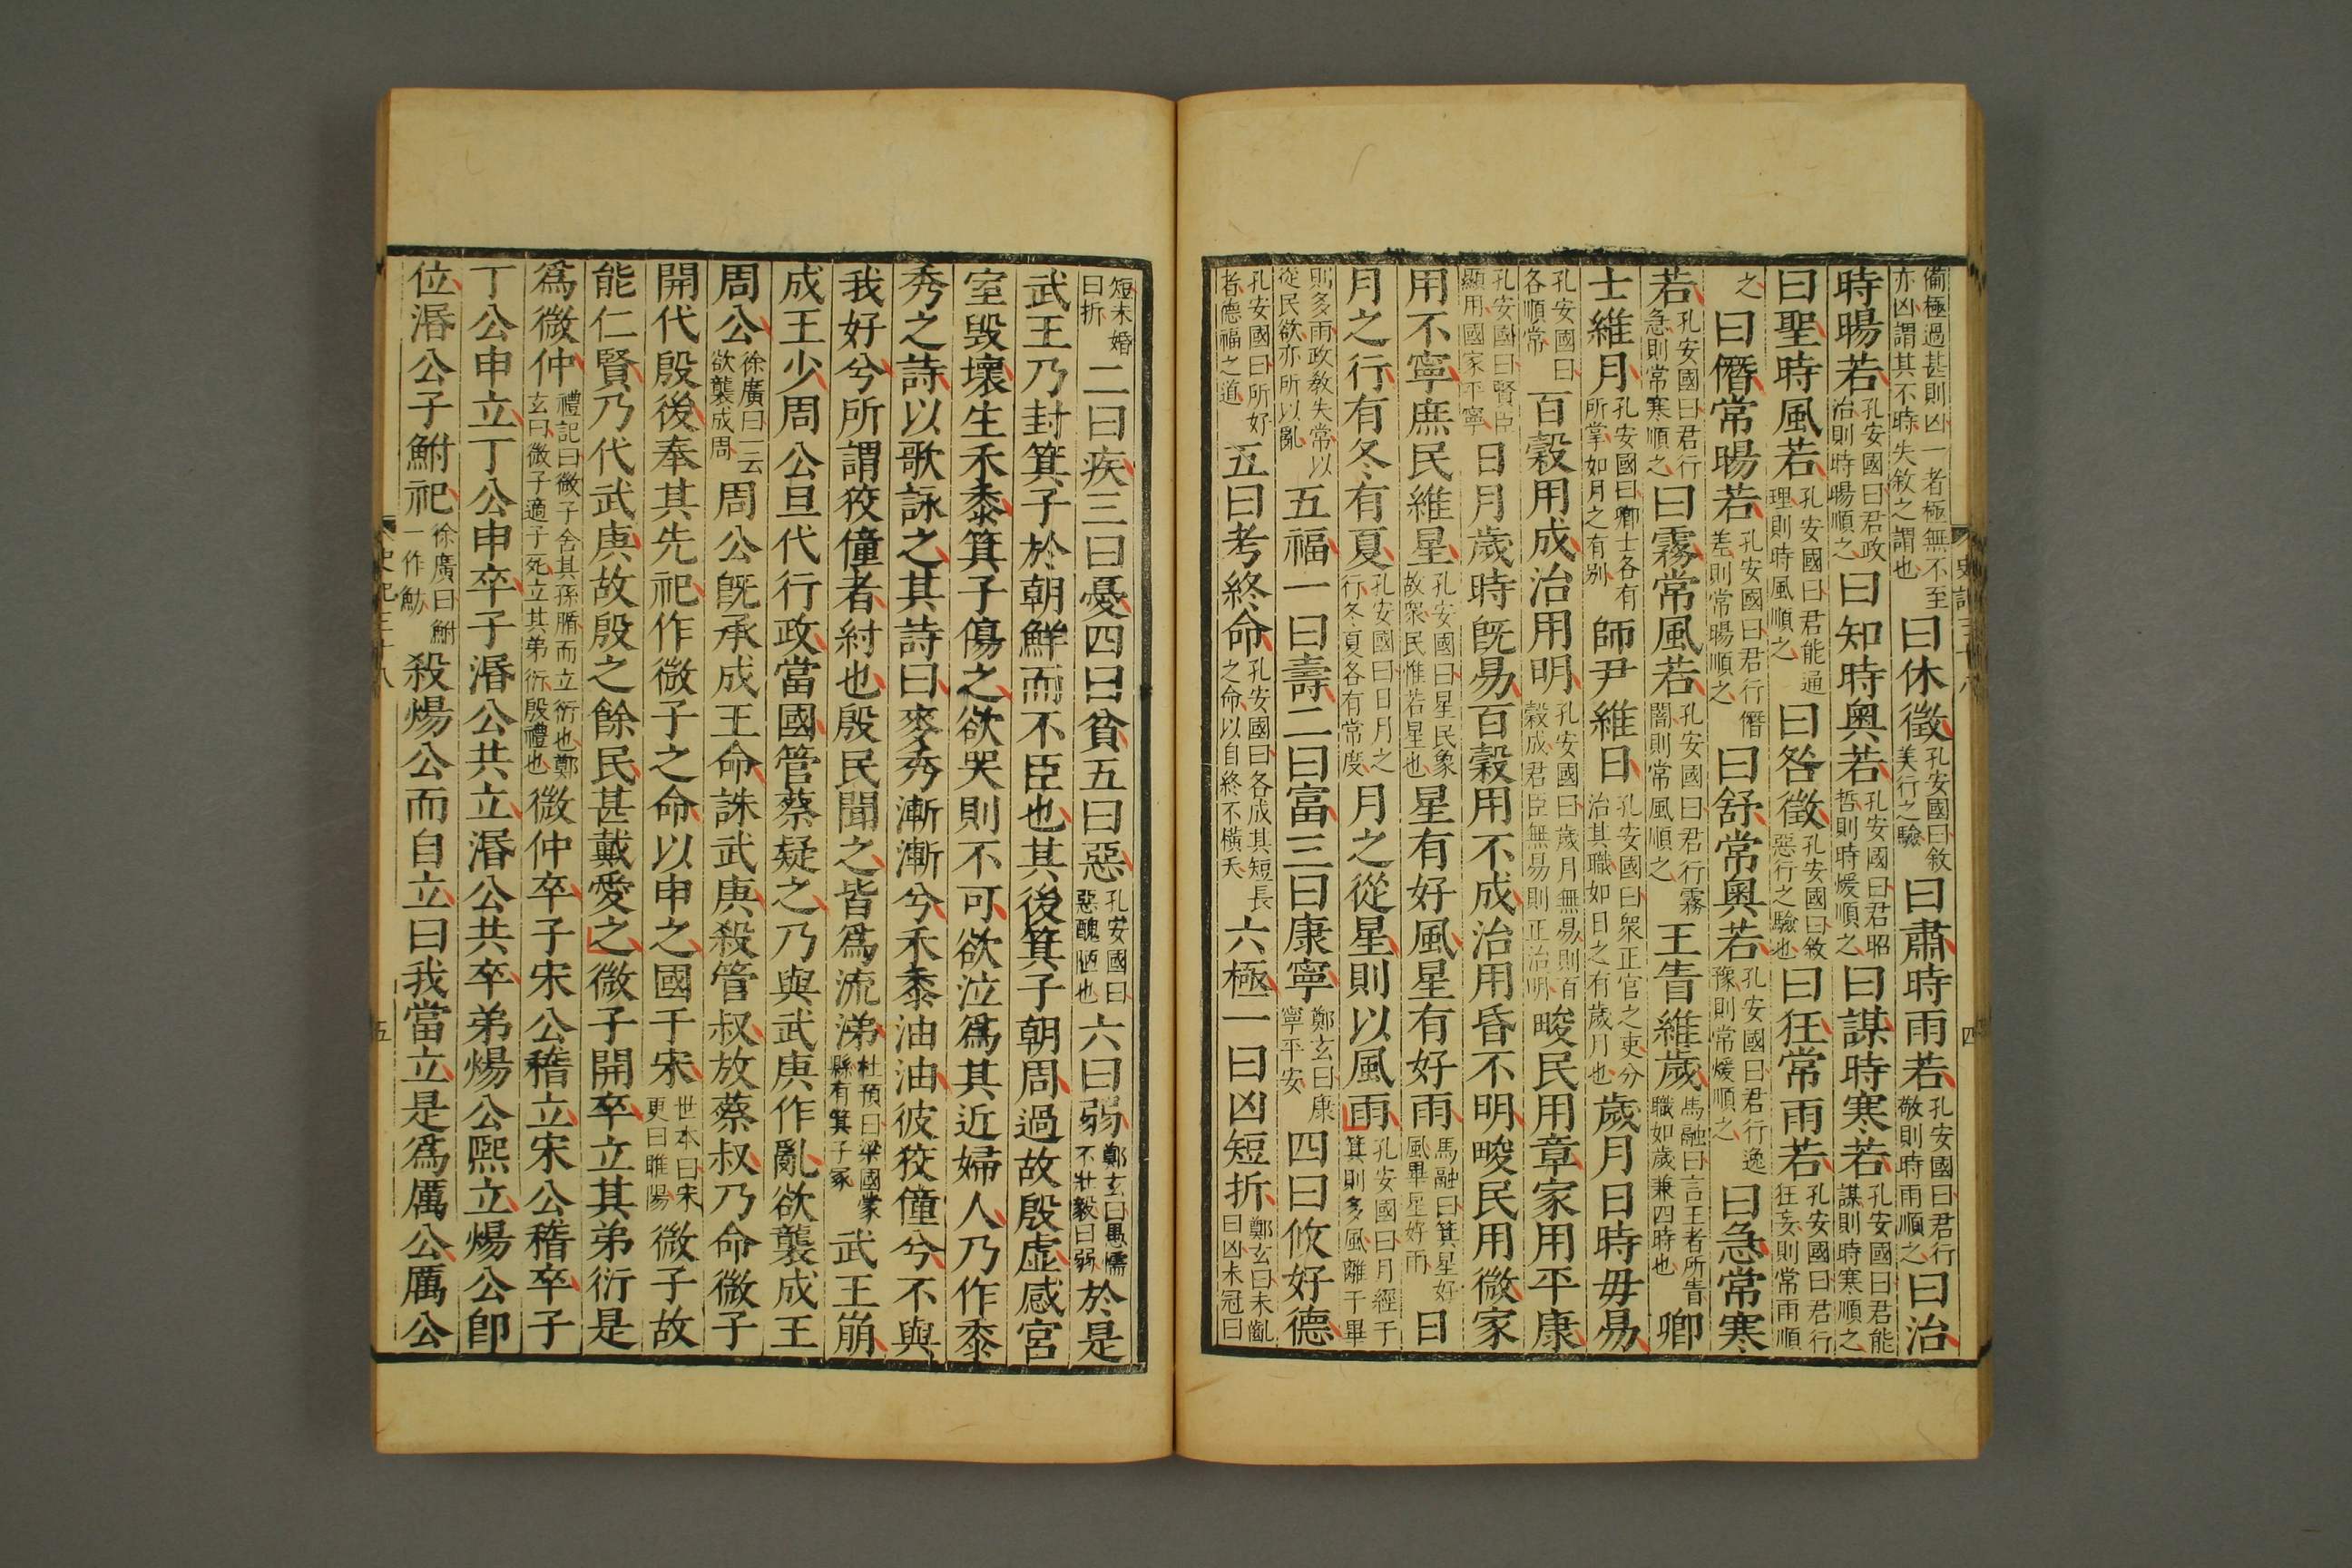 備極過甚則凶一者極無不至亦凶謂其不時失敘之謂也曰休徵孔安國曰敘美行之驗曰肅時雨若孔安國曰君行敬則時雨順之曰治
時暘若孔安國曰君政治則時暘順之曰知時奧若孔安國曰君昭哲則時煖順之曰謀時寒若孔安國曰君能謀則時寒順之
曰聖時風若孔安國曰君能通理則時風順之曰咎徵孔安國曰敘惡行之驗也曰狂常雨若孔安國曰君行狂妄則常雨順
之曰僭常暘若孔安國曰君行僭差則常暘順之曰舒常奧若孔安國曰君行逸豫則常煖順之曰急常寒
若孔安國曰君行急則常寒順之曰霧常風若孔安國曰君行霧闇則常風順之王眚維歲馬融曰言王者所眚職如歲兼四時也卿
士維月孔安國曰卿士各有所掌如月之有別師尹維日孔安國曰眾正官之吏分治其職如日之有歲月也歲月日時毋易
孔安國曰各順常百穀用成治用明孔安國曰歲月無易則百穀成君臣無易則正治明畯民用章家用平康
孔安國曰賢臣顯用國家平寧日月歲時既易百穀用不成治用昏不明畯民用微家
用不寧庶民維星孔安國曰星民象故眾民惟若星也星有好風星有好雨馬融曰箕星好風畢星好雨日
月之行有冬有夏孔安國曰日月之行冬夏各有常度月之從星則以風雨孔安國曰月經于箕則多風離于畢
則多雨政教失常以從民欲亦所以亂五福一曰壽二曰富三曰康寧鄭玄曰康寧平安四曰攸好德
孔安國曰所好者德福之道五曰考終命孔安國曰各成其短長之命以自終不橫夭六極一曰凶短折鄭玄曰未齓曰凶未冠曰
短未婚曰折二曰疾三曰憂四曰貧五曰惡孔安國曰惡醜陋也六曰弱鄭玄曰愚懦不壯毅曰弱於是
武王乃封箕子於朝鮮而不臣也其後箕子朝周過故殷虛感宮
室毀壞生禾黍箕子傷之欲哭則不可欲泣爲其近婦人乃作黍
秀之詩以歌詠之其詩曰麥秀漸漸兮禾黍油油彼狡僮兮不與
我好兮所謂狡僮者紂也殷民聞之皆爲流涕杜預曰梁國蒙縣有箕子冢武王崩
成王少周公旦代行政當國管蔡疑之乃與武庚作亂欲襲成王
周公徐廣曰一云欲襲成周周公既承成王命誅武庚殺管叔放蔡叔乃命微子
開代殷後奉其先祀作微子之命以申之國于宋世本曰宋更曰睢陽微子故
能仁賢乃代武庚故殷之餘民甚戴愛之微子開卒立其弟衍是
爲微仲禮記曰微子舍其孫腯而立衍也鄭玄曰微子適子死立其弟衍殷禮也微仲卒子宋公稽立宋公稽卒子
丁公申立丁公申卒子湣公共立湣公共卒弟煬公熙立煬公卽
位湣公子鮒祀徐廣曰鮒一作魴殺煬公而自立曰我當立是爲厲公厲公
史記三十八
四
史記三十八
五